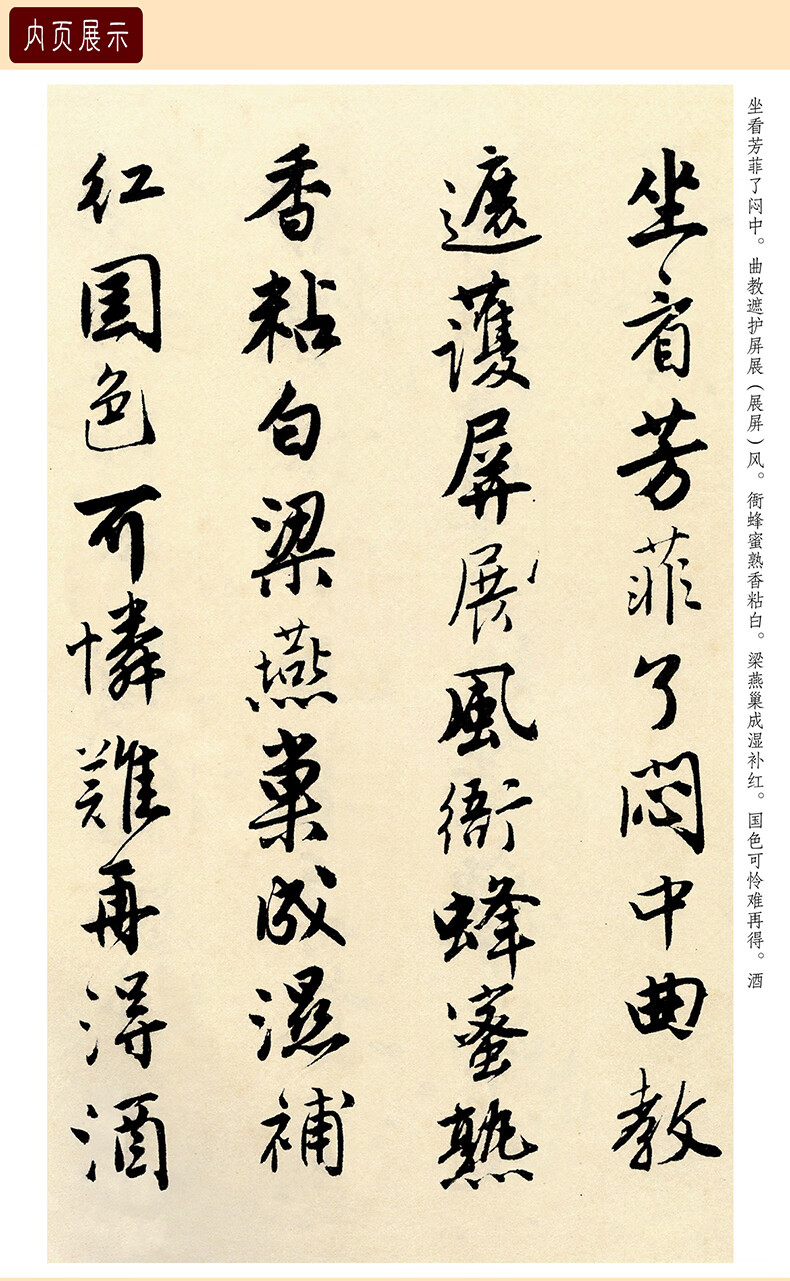 内页展示
坐看芳菲了闷中。曲教遮护屏展（展屏）风。衙蜂蜜熟香粘白。梁燕巢成湿补红。国色可怜难再得。酒
坐看芳菲了悶中曲教
遮護屏展風衙蜂蜜熟
香粘白梁燕巢成濕補
紅國色可憐難再得酒